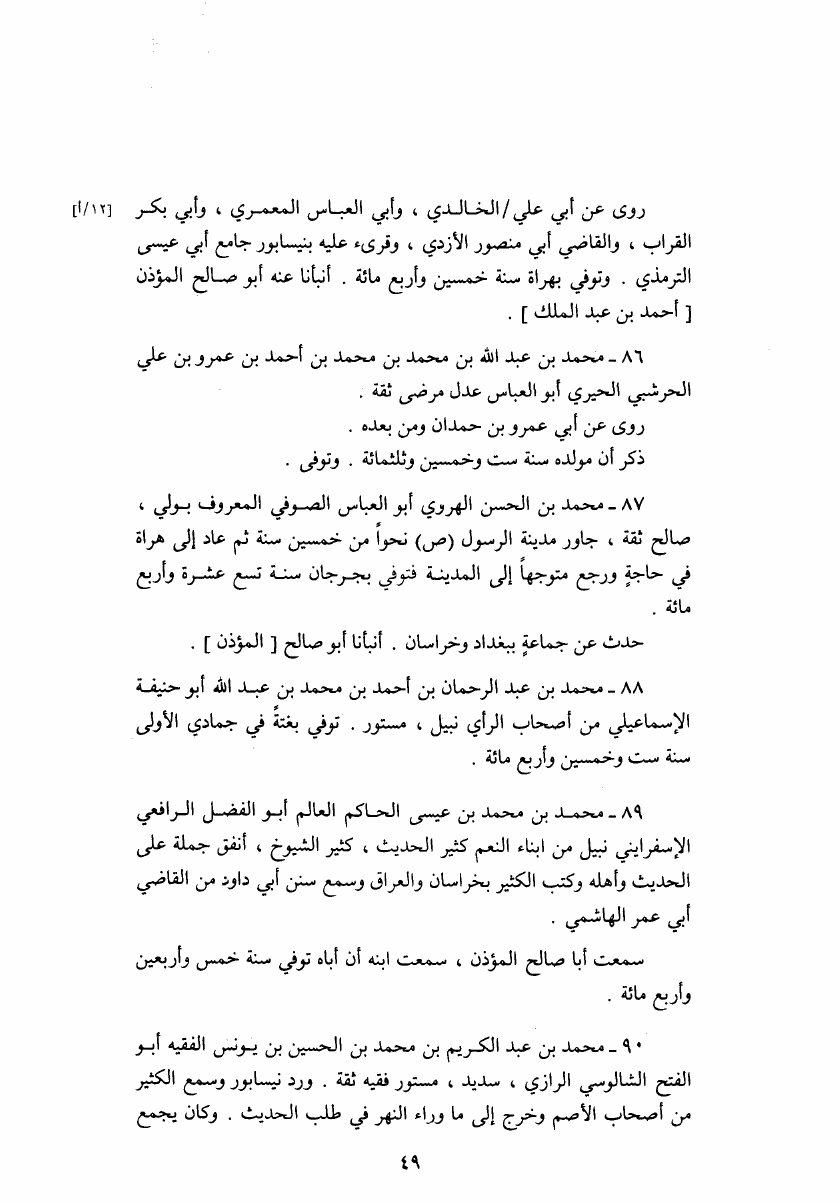 روى عن أبي علي/الخالدي ، وأبي العباس المعمري ، وأبي بكر [١٢/أ]
القراب ، والقاضي أبي منصور الأزدي ، وقرىء عليه بنيسابور جامع أبي عيسى
الترمذي . وتوفي بهراة سنة خمسين وأربع مائة . أنبأنا عنه أبو صالح المؤذن
[ أحمد بن عبد الملك ] .
٨٦ ـ محمد بن عبد الله بن محمد بن محمد بن أحمد بن عمرو بن علي
الحرشبي الحيري أبو العباس عدل مرضى ثقة .
روى عن أبي عمرو بن حمدان ومن بعده .
ذكر أن مولده سنة ست وخمسين وثلثمائة . وتوفى .
٨٧ ـ محمد بن الحسن الهروي أبو العباس الصوفي المعروف بولي ،
صالح ثقة ، جاور مدينة الرسول (ص) نحواً من خمسين سنة ثم عاد إلى هراة
في حاجةٍ ورجع متوجهاً إلى المدينة فتوفي بجرجان سنة تسع عشرة وأربع
مائة .
حدث عن جماعةٍ ببغداد وخراسان . أنبأنا أبو صالح [ المؤذن ] .
٨٨ ـ محمد بن عبد الرحمان بن أحمد بن محمد بن عبد الله أبو حنيفة
الإسماعيلي من أصحاب الرأي نبيل ، مستور . توفي بغتةً في جمادي الأولى
سنة ست وخمسين وأربع مائة .
٨٩ ـ محمد بن محمد بن عيسى الحاكم العالم أبو الفضل الرافعي
الإسفرايني نبيل من ابناء النعم كثير الحديث ، كثير الشيوخ ، أنفق جملة على
الحديث وأهله وكتب الكثير بخراسان والعراق وسمع سنن أبي داود من القاضي
أبي عمر الهاشمي .
سمعت أبا صالح المؤذن ، سمعت ابنه أن أباه توفي سنة خمس وأربعين
وأربع مائة .
٩٠ ـ محمد بن عبد الكريم بن محمد بن الحسين بن يونس الفقيه أبو
الفتح الشالوسي الرازي ، سديد ، مستور فقيه ثقة . ورد نيسابور وسمع الكثير
من أصحاب الأصم وخرج إلى ما وراء النهر في طلب الحديث . وكان يجمع
٤٩